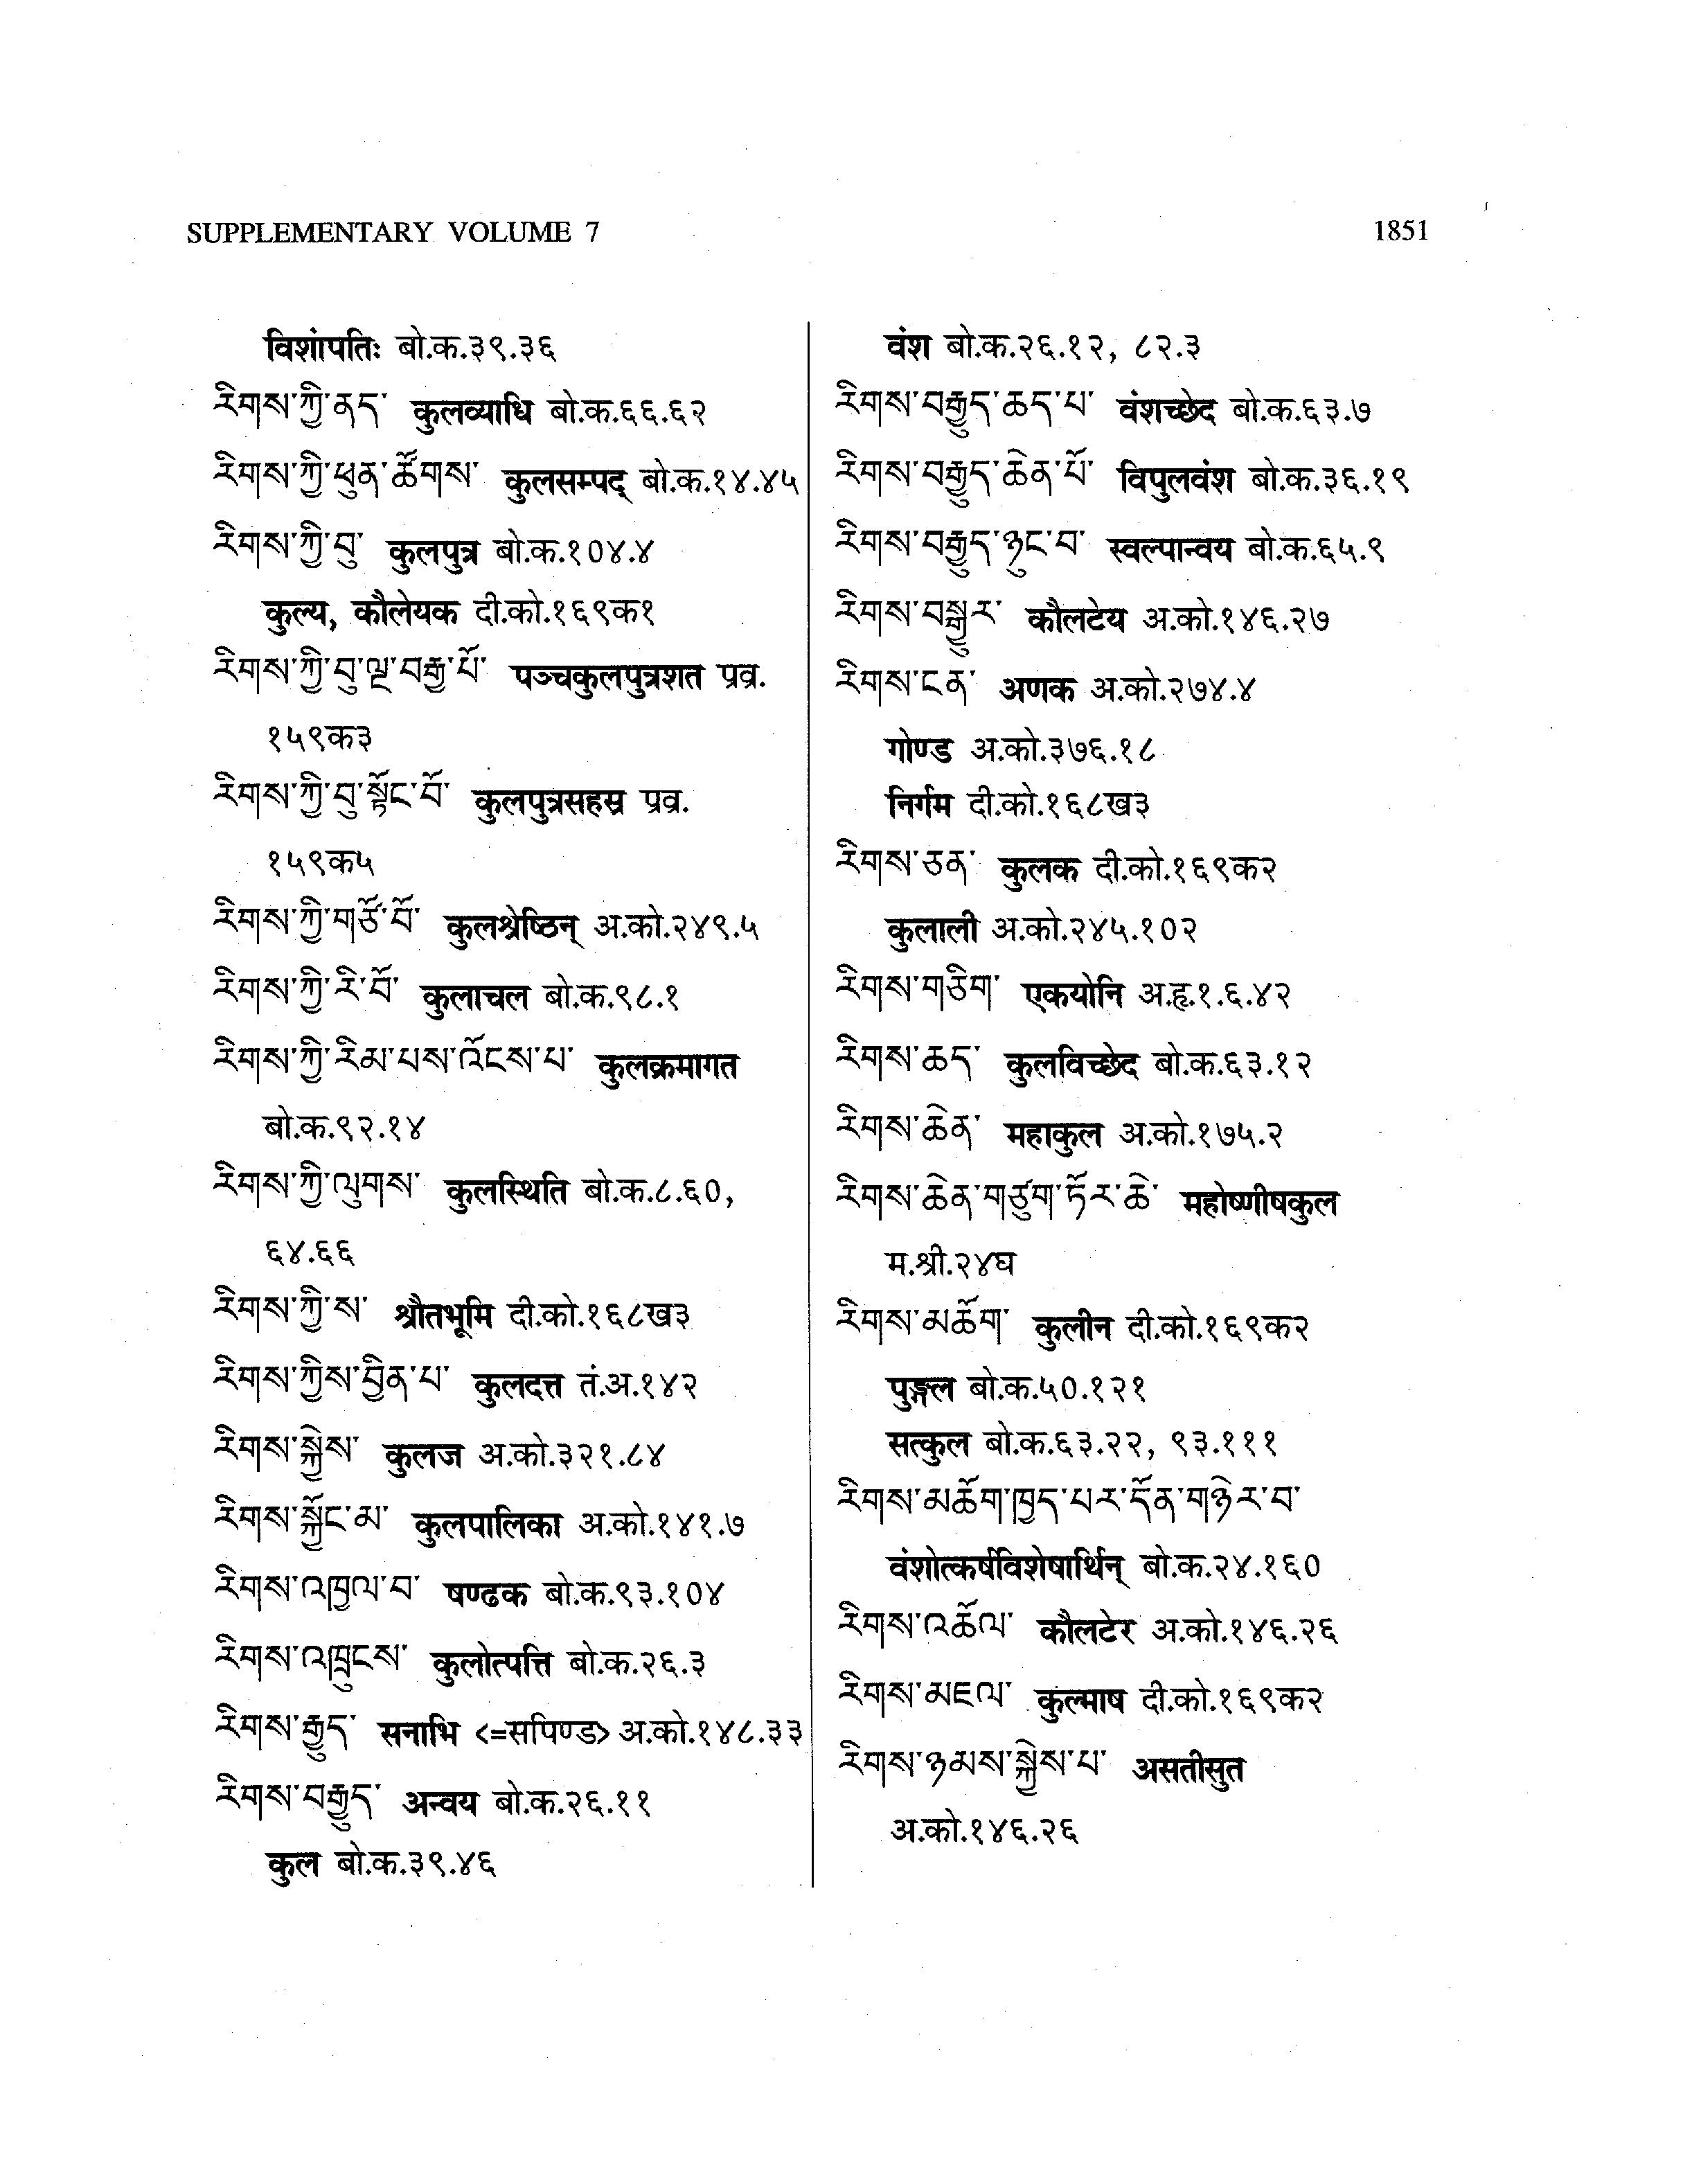 SUPPLEMENTARY VOLUME 7
1851
विशांपतिः बो.क.३९.३६
རིགས་ཀྱི་ནད་ कुलव्याधि बो.क.६६.६२
རིགས་ཀྱི་ཕུན་ཚོགས་ कुलसम्पद् बो.क.१४.४५
རིགས་ཀྱི་བུ་ कुलपुत्र बो.क.१०४.४
कुल्य, कौलेयक दी.को.१६९क१
རིགས་ཀྱི་བུ་ལྔ་བརྒྱ་པོ་ पञ्चकुलपुत्रशत प्रव्र.
१५९क३
རིགས་ཀྱི་བུ་སྟོང་པོ་ कुलपुत्रसहस्र प्रव्र.
१५९क५
རིགས་ཀྱི་གཙོ་བོ་ कुलश्रेष्ठिन् अ.को.२४९.५
རིགས་ཀྱི་རི་བོ་ कुलाचल बो.क.९८.१
རིགས་ཀྱི་རིམ་པས་འོངས་པ་ कुलक्रमागत
बो.क.९२.१४
རིགས་ཀྱི་ལུགས་ कुलस्थिति बो.क.८.६०,
६४.६६
རིགས་ཀྱི་ས་ श्रौतभूमि दी.को.१६८ख३
རིགས་ཀྱིས་བྱིན་པ་ कुलदत्त तं.अ.१४२
རིགས་སྐྱེས་ कुलज अ.को.३२१.८४
རིགས་སྐྱོང་མ་ कुलपालिका अ.को.१४१.७
རིགས་འཁྱལ་བ་ षण्ढक बो.क.९३.१०४
རིགས་འཁྲུངས་ कुलोत्पत्ति बो.क.२६.३
རིགས་རྒྱུད་ सनाभि <=सपिण्ड> अ.को.१४८.३३
རིགས་བརྒྱུད་ अन्वय बो.क.२६.११
कुल बो.क.३९.४६
वंश बो.क.२६.१२, ८२.३
རིགས་བརྒྱུད་ཆད་པ་ वंशच्छेद बो.क.६३.७
རིགས་བརྒྱུད་ཆེན་པོ་ विपुलवंश बो.क.३६.१९
རིགས་བརྒྱུད་ཉུང་བ་ स्वल्पान्वय बो.क.६५.९
རིགས་བསྒྱུར་ कौलटेय अ.को.१४६.२७
རིགས་ངན་ अणक अ.को.२७४.४
गोण्ड अ.को.३७६.१८
निर्गम दी.को.१६८ख३
རིགས་ཅན་ कुलक दी.को.१६९क२
कुलाली अ.को.२४५.१०२
རིགས་གཅིག་ एकयोनि अ.हृ.१.६.४२
རིགས་ཆད་ कुलविच्छेद बो.क.६३.१२
རིགས་ཆེན་ महाकुल अ.को.१७५.२
རིགས་ཆེན་གཙུག་ཏོར་ཆེ་ महोष्णीषकुल
म.श्री.२४घ
རིགས་མཆོག་ कुलीन दी.को.१६९क२
पुङ्गल बो.क.५०.१२१
सत्कुल बो.क.६३.२२, ९३.१११
རིགས་མཆོག་ཁྱད་པར་དོན་གཉེར་བ་
वंशोत्कर्षविशेषार्थिन् बो.क.२४.१६०
རིགས་འཆོལ་ कौलटेर अ.को.१४६.२६
རིགས་མཇལ་ कुल्माष दी.को.१६९क२
རིགས་ཉམས་སྐྱེས་པ་ असतीसुत
अ.को.१४६.२६